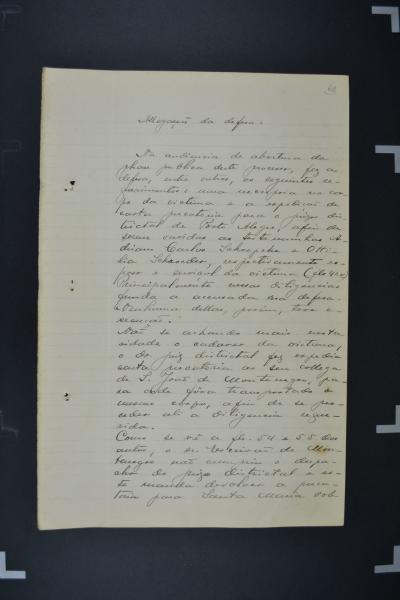 Allegação da defesa:
Na audiencia de abertura da
phase publica deste processo, fez a
defesa, entre outros, os seguintes re-
querimentos: uma necropsia no cor-
po da victima e a expedição de
carta precatoria para o juizo dis-
trictal de Porto Alegre, afim de
serem ouvidas as testemunhas A-
driam Carlos e Otti-
lia Schneider, respectivamente es-
poso e da victima (fls 42v)
Principalmente nessas diligencias
funda a accusada sua defesa.
Nenhuma dellas, porém, teve e-
xecução.
Não se achando mais nesta
cidade o cadaver da victima,
o Dr juiz districtal fez expedir
carta precatoria ao seu collega
de S. João de Montenegro, pa-
ra onde fôra transportado o
corpo, afim de se pro-
ceder ali a diligencia reque-
rida.
Como se vê a fls. 54 e 55 dos
autos, o sr. Escrivão de Mon-
tenegro não cumpriu o despa-
cho do juizo districtal e es-
te manda devolver a preca-
toria para Santa Maria sob